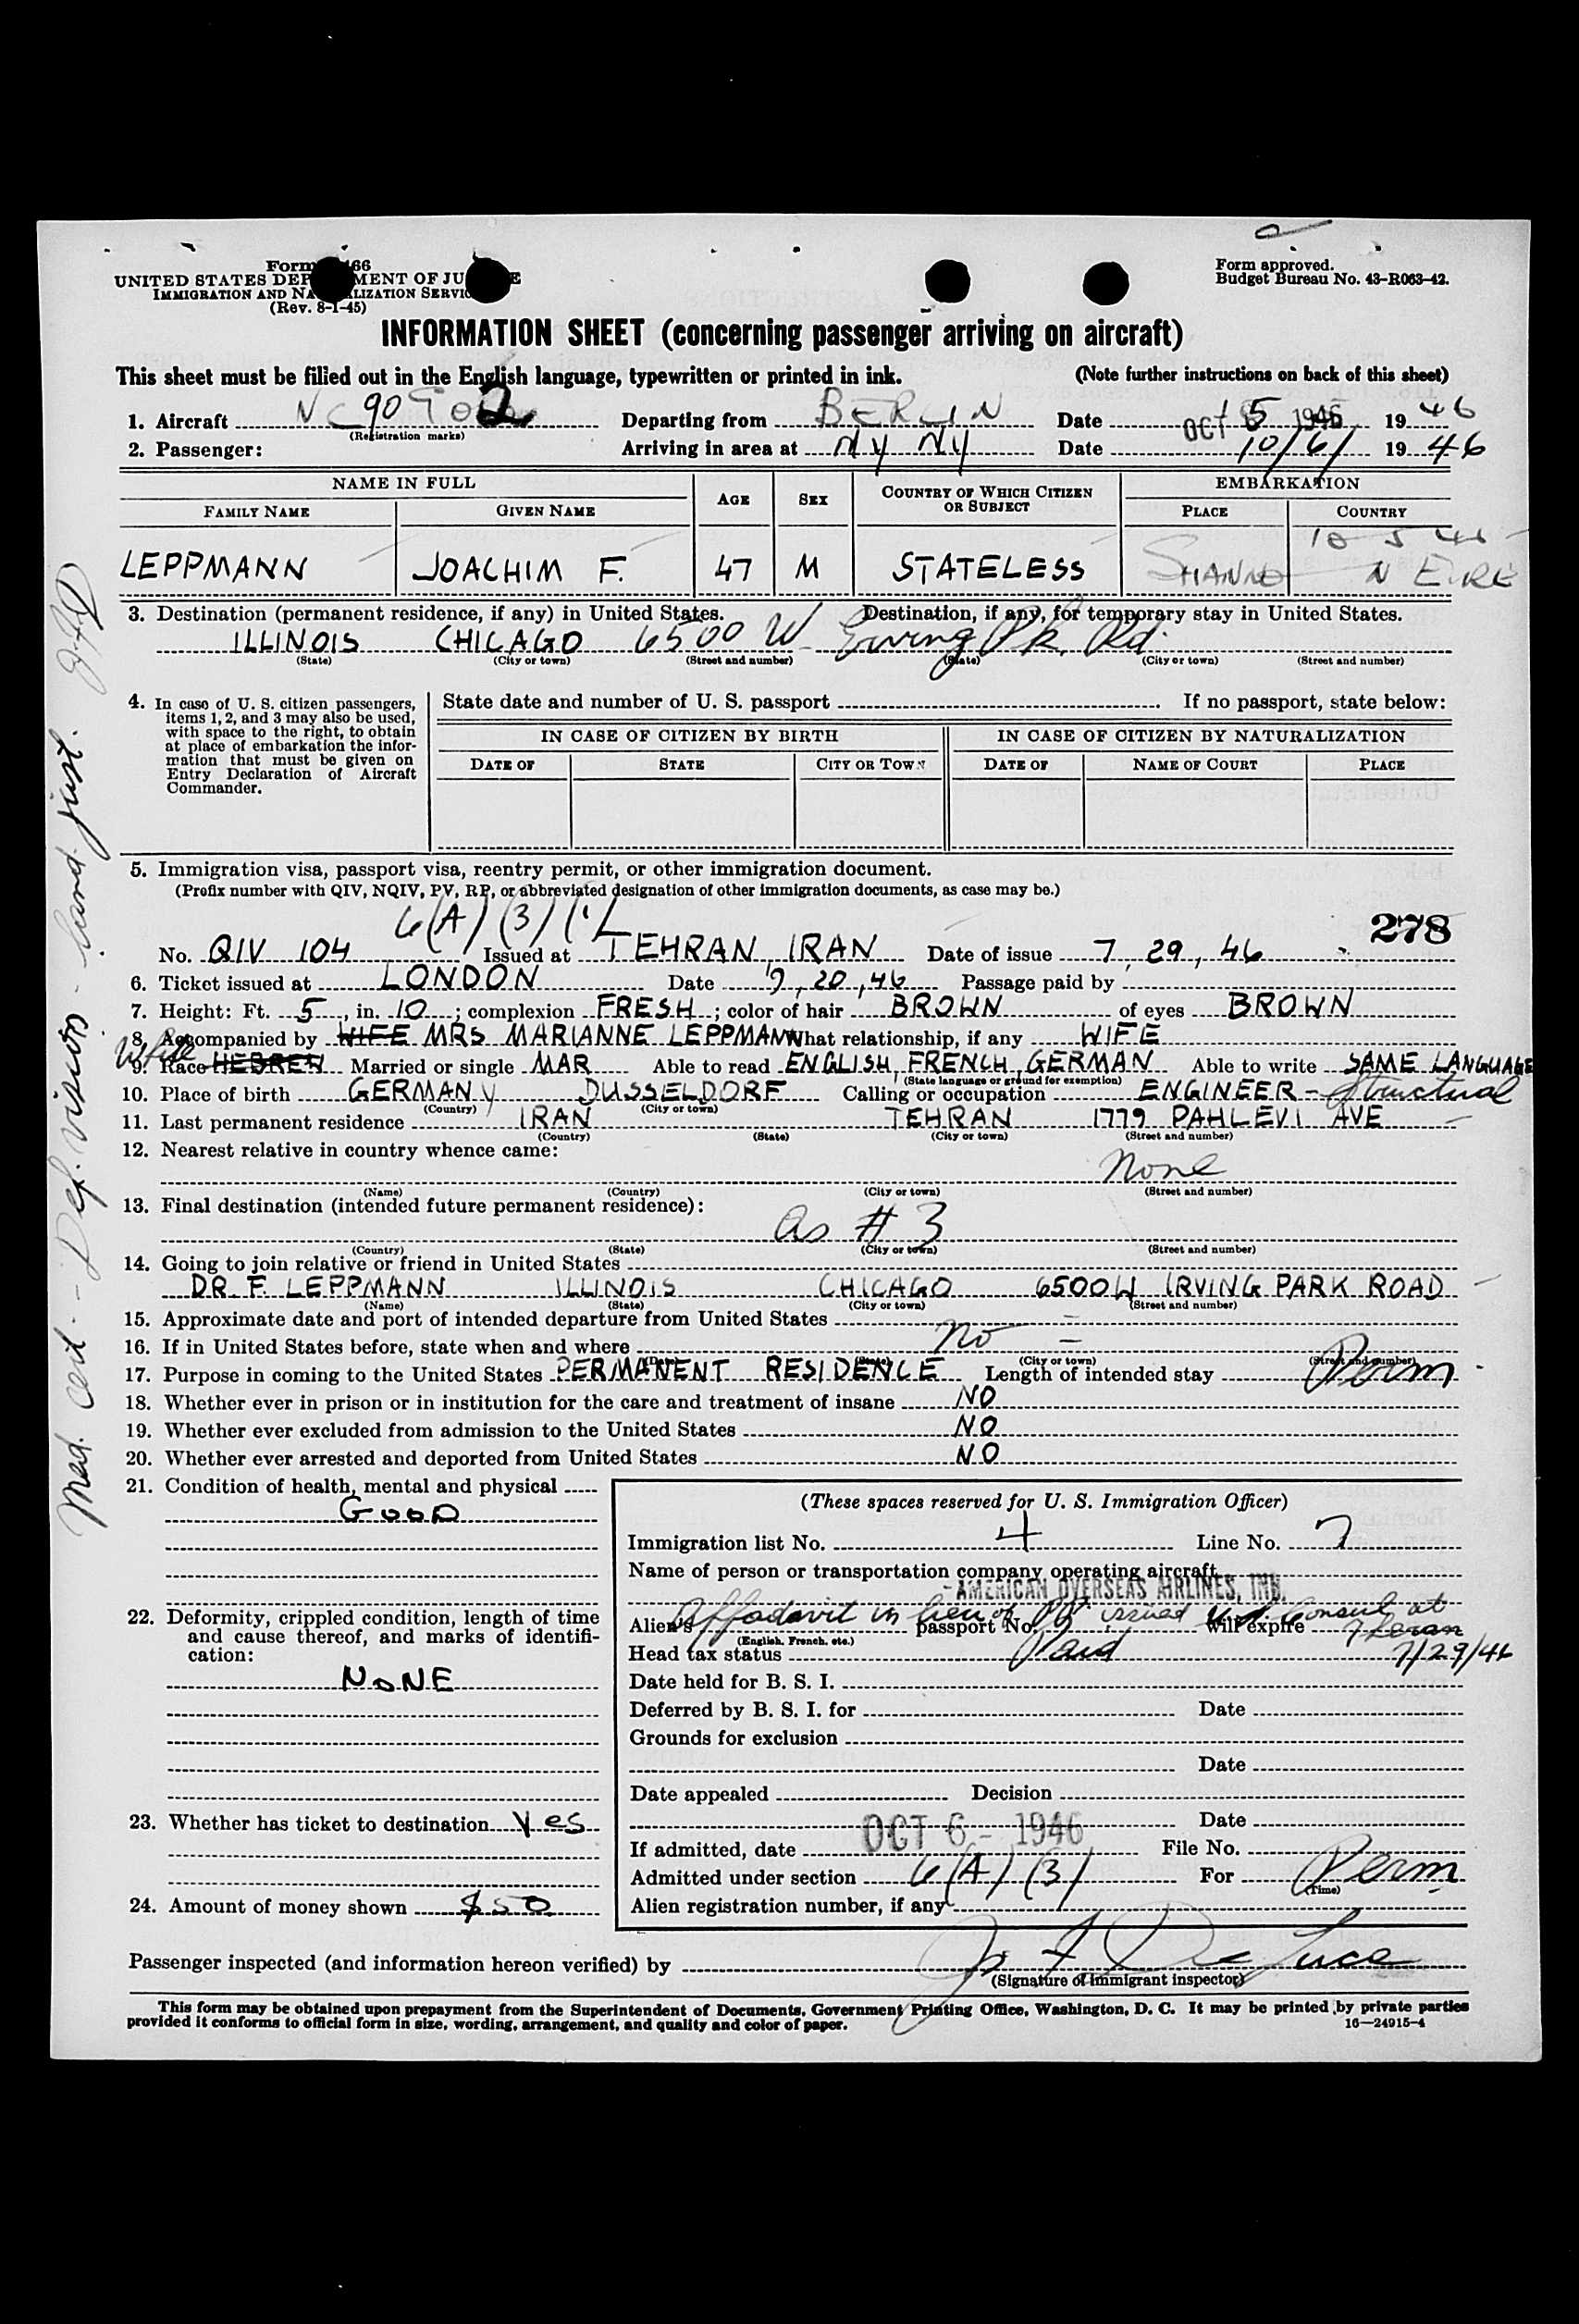 Form 66
UNITED STATES DEP MENT OF JU E
IMMIGRATION AND NA LIZATION SERVIC
(Rev. 8-1-45)
Form approved.
Budget Bureau No. 43-R063-42.
INFORMATION SHEET (concerning passenger arriving on aircraft)
This sheet must be filled out in the English language, typewritten or printed in ink. (Note further instructions on back of this sheet)
1. Aircraft NC 90 2 Departing from BERLIN Date OCT 5 1946 1946
(Registration marks)
2. Passenger: Arriving in area at NY NY Date 10/6/ 1946
NAME IN FULL AGE SEX COUNTRY OF WHICH CITIZEN OR SUBJECT EMBARKATION
FAMILY NAME GIVEN NAME PLACE COUNTRY
10 5 46
LEPPMANN JOACHIM F. 47 M STATELESS SHANNO N EIRE
3. Destination (permanent residence, if any) in United States. Destination, if any, for temporary stay in United States.
ILLINOIS CHICAGO 6500 W Irving Pk. Rd.
(State) (City or town) (Street and number) (State) (City or town) (Street and number)
4. In case of U. S. citizen passengers, items 1, 2, and 3 may also be used, with space to the right, to obtain at place of embarkation the information that must be given on Entry Declaration of Aircraft Commander.
State date and number of U. S. passport . If no passport, state below:
IN CASE OF CITIZEN BY BIRTH IN CASE OF CITIZEN BY NATURALIZATION
DATE OF STATE CITY OR TOWN DATE OF NAME OF COURT PLACE
5. Immigration visa, passport visa, reentry permit, or other immigration document.
(Prefix number with QIV, NQIV, PV, RP, or abbreviated designation of other immigration documents, as case may be.)
6(A)(3)
278
No. QIV 104 Issued at TEHRAN, IRAN Date of issue 7, 29, 46
6. Ticket issued at LONDON Date 9, 20, 46 Passage paid by
7. Height: Ft. 5, in. 10; complexion FRESH; color of hair BROWN of eyes BROWN
8. Accompanied by WIFE MRS MARIANNE LEPPMANN What relationship, if any WIFE
White
9. Race HEBREW Married or single MAR Able to read ENGLISH, FRENCH, GERMAN Able to write SAME LANGUAGE
(State language or ground for exemption)
10. Place of birth GERMANY DUSSELDORF Calling or occupation ENGINEER - Structural
(Country) (City or town)
11. Last permanent residence IRAN TEHRAN 1779 PAHLEVI AVE
(Country) (State) (City or town) (Street and number)
12. Nearest relative in country whence came:
None
(Name) (Country) (City or town) (Street and number)
13. Final destination (intended future permanent residence):
as # 3
(Country) (State) (City or town) (Street and number)
14. Going to join relative or friend in United States
DR. F. LEPPMANN ILLINOIS CHICAGO 6500 W IRVING PARK ROAD
(Name) (State) (City or town) (Street and number)
15. Approximate date and port of intended departure from United States
16. If in United States before, state when and where no
(City or town) (Street and number)
17. Purpose in coming to the United States PERMANENT RESIDENCE Length of intended stay Perm
18. Whether ever in prison or in institution for the care and treatment of insane NO
19. Whether ever excluded from admission to the United States NO
20. Whether ever arrested and deported from United States NO
21. Condition of health, mental and physical
GOOD
22. Deformity, crippled condition, length of time and cause thereof, and marks of identification:
NONE
23. Whether has ticket to destination Yes
24. Amount of money shown $50
(These spaces reserved for U. S. Immigration Officer)
Immigration list No. 4 Line No. 7
Name of person or transportation company operating aircraft
AMERICAN OVERSEAS AIRLINES, INC.
Affadavit in lieu of PP. issued Consul at Teheran 7/29/46
Alien's passport No. Will expire
(English, French, etc.)
Head tax status Paid
Date held for B. S. I.
Deferred by B. S. I. for Date
Grounds for exclusion
Date
Date appealed Decision
Date
If admitted, date OCT 6 - 1946 File No.
Admitted under section 6(A)(3) For Perm
(Time)
Alien registration number, if any
Passenger inspected (and information hereon verified) by De Luca
(Signature of immigrant inspector)
This form may be obtained upon prepayment from the Superintendent of Documents, Government Printing Office, Washington, D. C. It may be printed by private parties
provided it conforms to official form in size, wording, arrangement, and quality and color of paper. 16—24915-4
Med. cert. - Def. vision -